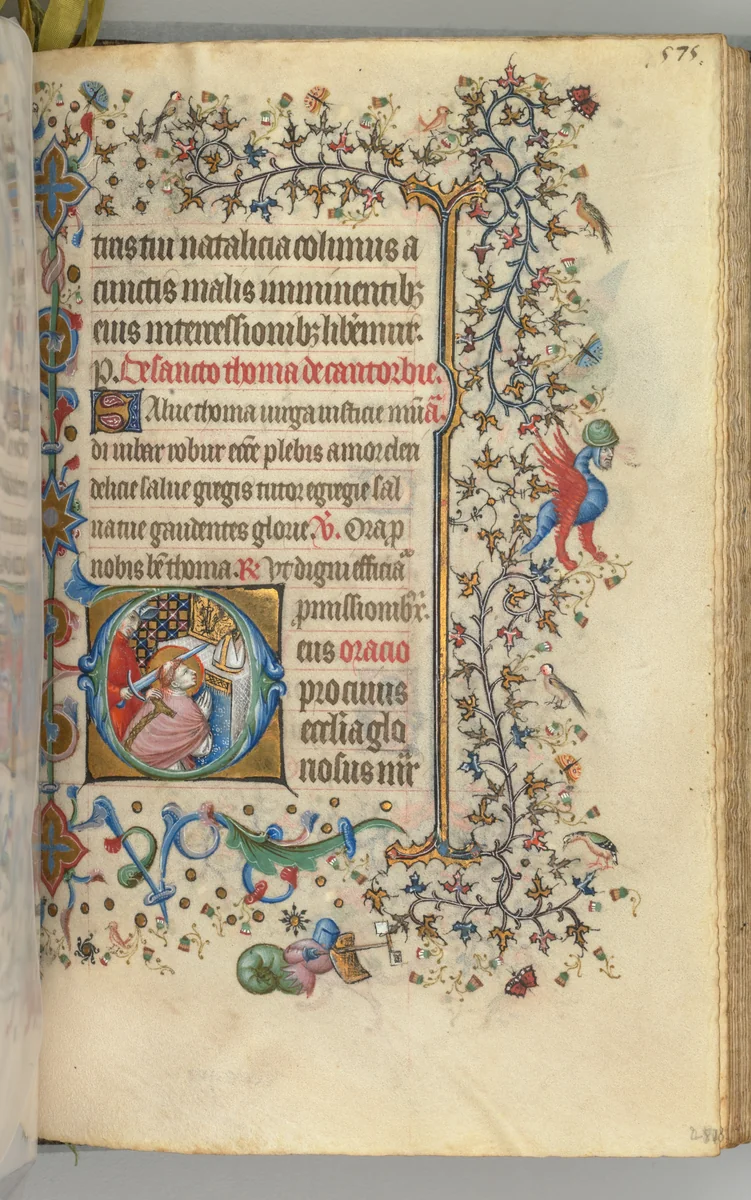 575.
tiris tui natalicia colimus a
cunctis malis imminentibꝫ
eius intercessionibꝫ liberemur.
p. De sancto thoma de cantorbie.
Salue thoma uirga iusticie mūdi
iubar robur ecclesie plebis amor cleri
delicie salue gregis tutor egregie sal
ua tue gaudentes glorie. V̄. Ora p
nobis bte thoma. R̄ Vt digni efficia
pmissionibꝫ
eus oracio
pro cuius
ecclia glo
riosus